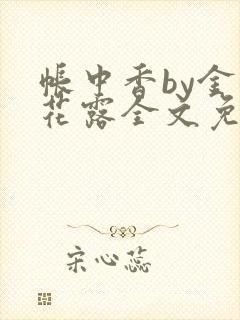 帐中香by金
花露全文免
宋心蕊